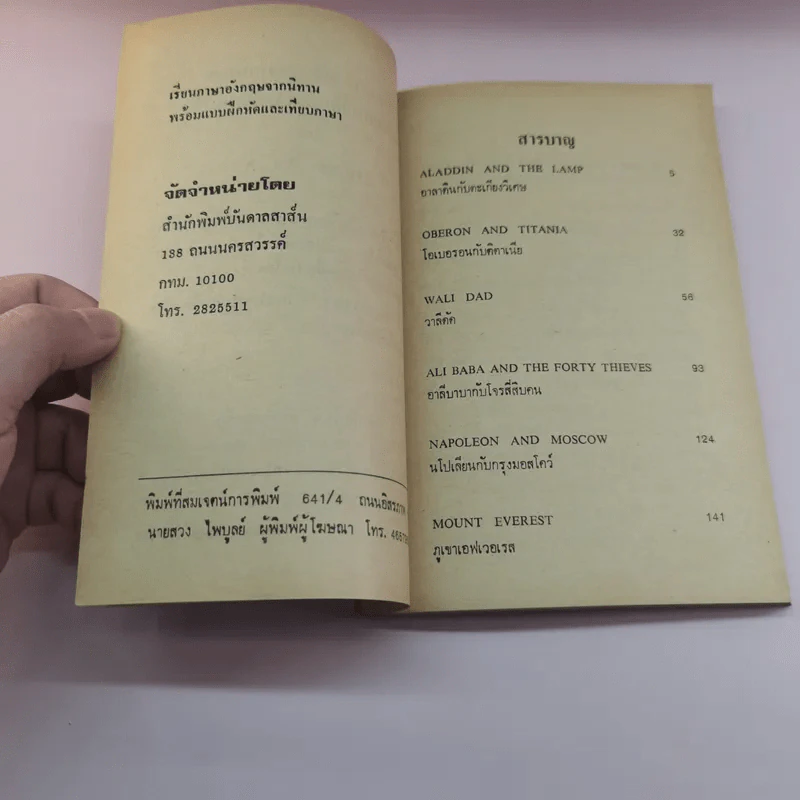 เรียนภาษาอังกฤษจากนิทาน
พร้อมแบบฝึกหัดและเทียบภาษา
จัดจำหน่ายโดย
สำนักพิมพ์บันดาลสาส์น
188 ถนนนครสวรรค์
กทม. 10100
โทร. 2825511
พิมพ์ที่สมเจตน์การพิมพ์ 641/4
นายสวง ไพบูลย์ ผู้พิมพ์ผู้โฆษณา โทร.
สารบาญ
ALADDIN AND THE LAMP 5
อาลาดินกับตะเกียงวิเศษ
OBERON AND TITANIA 32
โอเบอรอนกับติตาเนีย
WALI DAD 56
วาลีดัด
ALI BABA AND THE FORTY THIEVES 93
อาลีบาบากับโจรสี่สิบคน
NAPOLEON AND MOSCOW 124
นโปเลียนกับกรุงมอสโคว์
MOUNT EVEREST 141
ภูเขาเอฟเวอเรส